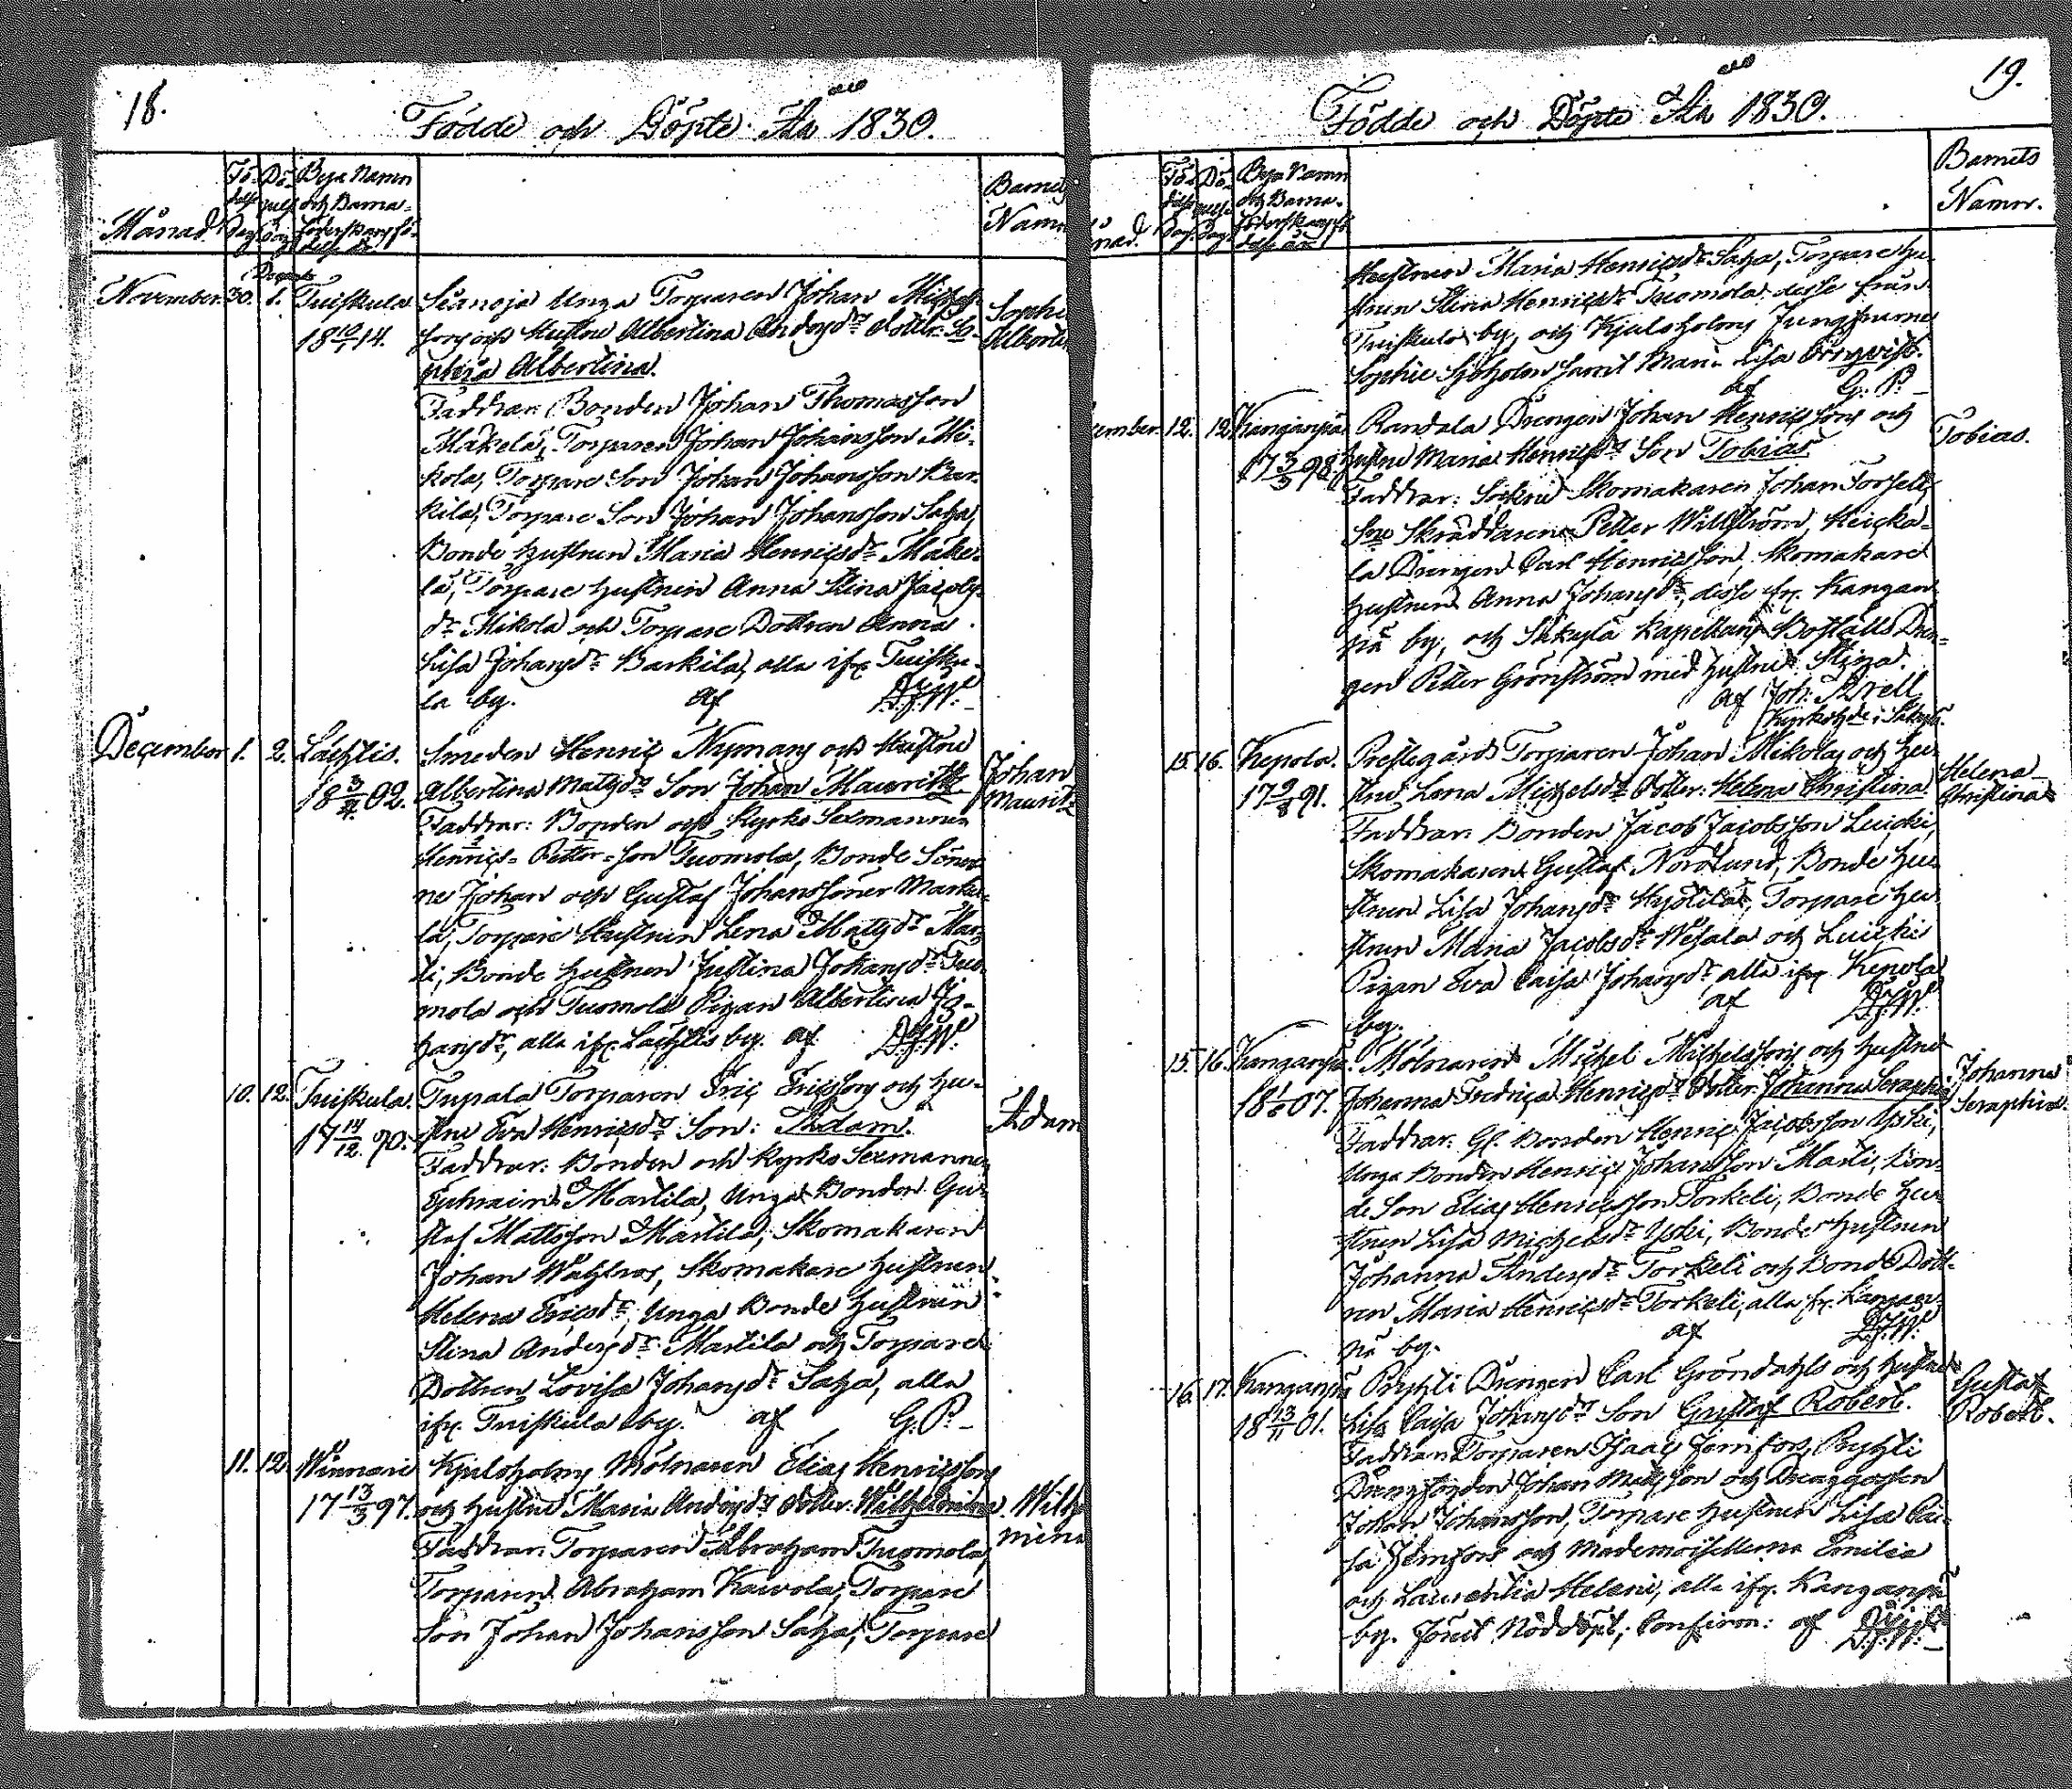 18.
Födde och Döpte År 1830.
Månad.
Fö-
delse
Dag
Dö-
pelse
Dag
Bya Namn
och Barna-
föderskans fö-
delse år.
Barnets
Namn
November. 30. Decemb. 1. Tuiskula
18 10/1 14.
Sianoja Unga Torparen Johan Michels-
sons och Hustru Albertina Andersdr dotter: So-
phia Albertina.
Sophi
Alberti
Faddrar: Bonden Johan Thomasson
Mäkelä, Torparen Johan Johansson Mi-
kola, Torpare Son Johan Johansson Bar-
kila, Torpare Son Johan Johansson Saha,
Bonde Hustrun Maria Henricsdr Mäke-
lä, Torpare Hustrun Anna Stina Jacobs-
dr Mikola och Torpare Dottren Anna
Lisa Johansdr Barkila, alla ifr. Tuisku-
la by. af
December 1. 2. Lachtis.
18 02.
Smeden Henric Nymans och Hustru
Albertina Matsdr Son Johan Mauritz.
Johan
Mauritz
Faddrar: Bonden och Kyrko Sexmannen
Henric Petter-son Tuomola, Bonde Söner-
ne Johan och Gustaf Johanssöner Marku-
la, Torpare Hustrun Lena Matsdr Mar-
ti, Bonde Hustrun Justina Johansdr Tuo-
mola och Tuomola Pigan Albertina Jo-
hansdr, alla ifr. Lachtis by. af
10. 12. Tuiskula.
17 14/12 90.
Tupala Torparen Eric Ericssons och Hu-
stru Eva Henricsdr Son: Adam.
Adam
Faddrar: Bonden och Kyrko Sexmannen
Ephraim Martila, Unga Bonden Gu-
staf Mattsson Martila, Skomakaren
Johan Wahlros, Skomakare Hustrun
Helena Ericsdr, Unga Bonde Hustrun
Stina Andersdr Martila och Torpare
Dottren Lovisa Johansdr Saha, alla
ifr. Tuiskula by. af G. P.
11. 12 Winnare
17 13/3 97.
Kjuloholms Mölnaren Elias Henricssons
och Hustru Maria Andersdr dotter: Wilhelmina.
Wilhe
mina
Faddrar: Torparen Abraham Tuomola,
Torparen Abraham Kaivola, Torpare
Son Johan Johansson Saha, Torpare
19.
Födde och Döpte År 1830.
nad.
Fö-
delse
Dag.
Dö-
pelse
Dag.
Bya Namn
och Barna-
föderskans fö-
delse år
Barnets
Namn.
Hustrun Maria Henricsdr Saha, Torpare Hu-
strun Stina Henricsdr Tuomola, desse från
Tuiskula by, och Kjuloholms Jungfrurne
Sophie Sjöholm samt Maria Lisa Örnqvist.
af G. P.
cember. 12. 12 Kanganpä
17 3/3 98.
Randala Drengen Johan Henricssons och
Hustru Maria Henricsdr Son Tobias
Tobias.
Faddrar: Sockne Skomakaren Johan Forsell,
Sne Skräddaren Petter Willström, Heicka-
la Drengen Carl Henricsson, Skomakare
Hustrun Anna Johansdr, desse ifr. Kangan-
pä by, och Säkylä Kapellans Boställs Dren-
gen Petter Grönström med Hustru Stina.
af Joh. Brell
15. 16. Kepola.
17 91.
Prestegårds Torparen Johan Mikolas och Hu-
stru Lena Michelsdr dotter: Helena Christina.
Helena
Christina
Faddrar: Bonden Jacob Jacobsson Luicki,
Skomakaren Gustaf Nordlund, Bonde Hu-
strun Lisa Johansdr, Torpare Hu-
strun Maria Jacobsdr Wesala och Luicki
Pigan Eva Caisa Johansdr alla ifr. Kepola
by. af
15. 16. Kanganpä.
18 07.
Mölnaren Michel Michelssons och Hustru
Johanna Fredrica Henricsdr dotter: Johanna Seraphia.
Johanna
Seraphia.
Faddrar: Gl. Bonden Henric Jacobsson Yski,
Unga Bonden Henric Johansson Marti, Bon-
de Son Elias Henricsson Torkeli, Bonde Hu-
strun Lisa Michelsdr Yski, Bonde Hustrun
Johanna Andersdr Torkeli och Bonde Dott-
ren Maria Henricsdr Torkeli, alla fr. Kangan-
pä by. af
16. 17. Kanganpä
18 13/11 01.
Pryhti Drengen Carl Gröndahls och Hustru
Lisa Caisa Johansdr Son Gustaf Robert.
Gustaf
Robert.
Faddrar: Torparen Isaac Jernfors, Pryhti
Drengen Johan Matsson och Drenggossen
Johan Johansson, Torpare Hustrun Lisa Cai-
sa Jernfors och Mademoisellerna Emilia
och Laurentia Heleni, alla ifr. Kanganpä
by. Förut Nöddöpt, Confirm: af